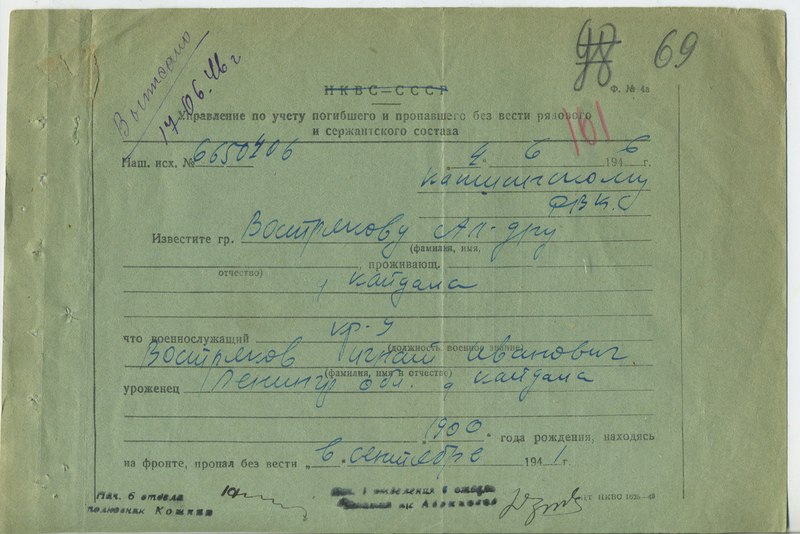 98 69
Выписано
17.06.46 г
НКВС–СССР
Ф. № 4а
Управление по учету погибшего и пропавшего без вести рядового
и сержантского состава
161
Наш. исх. № 6650406
"4" 6 1946 г.
РВК.
Известите гр. Вострякову Ал-дру
(фамилия, имя,
проживающ.
отчество)
Кайдама
что военнослужащий кр-ц
(должность военное звание)
Востряков Игнат Иванович
(фамилия, имя и отчество)
уроженец Ленингр обл. д Кайдама
1900 года рождения, находясь
на фронте, пропал без вести в сентябре 1941 г.
Нач. 6 отдела
полковник
Нач. 1 отделения 6 отдела